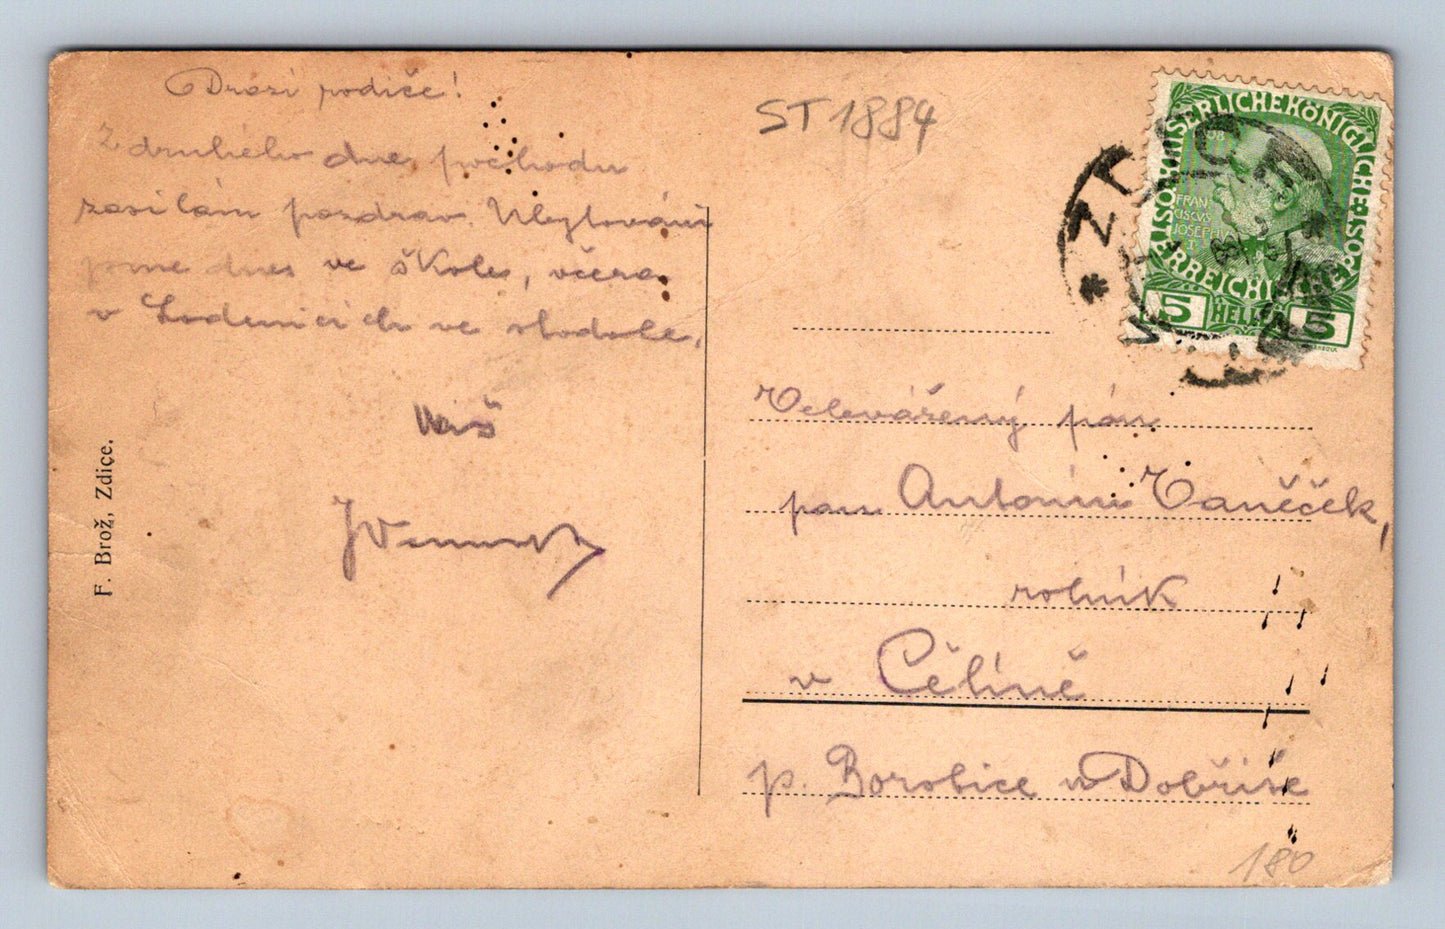 Drazí rodiče!
Z druhého dne pochodu
zasílám pozdrav. Ubytováni
jsme dnes ve škole, včera
v Lodenicích ve stodole.
Váš
F. Brož, Zdice.
ST 1884
ZDICE
KAISERLICHE KÖNIGLICHE ÖSTERREICHISCHE POST
1908
FRAN
CISCVS
JOSEPHV
I
5 HELLER 5
Velevážený pán
pan Antonín Vaněček,
rolník
v Čelíně
p. Borotice u Dobříše
180